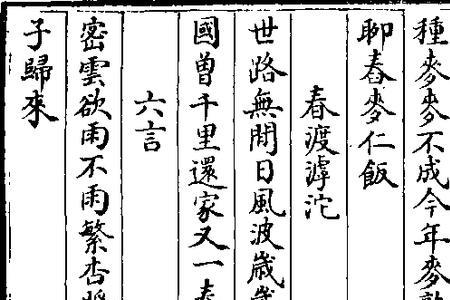 種麥麥不成今年麥
聊舂麥仁飯
春渡滹沱
世路無閒日風波歳
國曾千里還家又一
六言
密雲欲雨不雨繁杏
子歸來